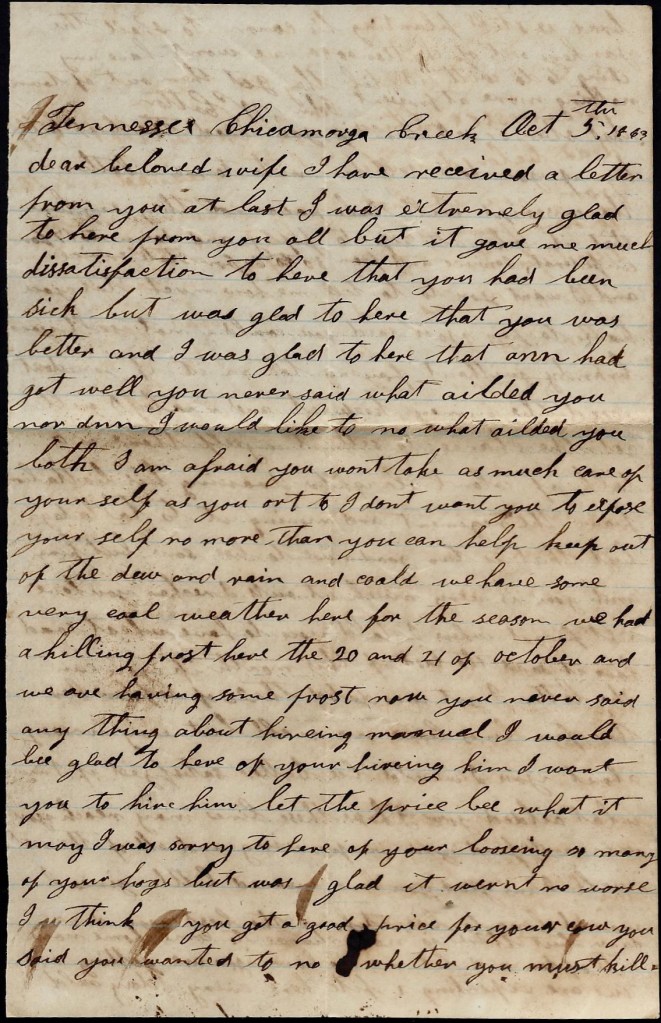 Tennessee Chicamorga Creek Oct 5th 1863
dear beloved wife I have received a letter
from you at last I was extremely glad
to here from you all but it gave me much
dissatisfaction to here that you had been
sick but was glad to here that you was
better and I was glad to here that ann had
got well you never said what ailded you
nor ann I would like to no what ailded you
both I am afraid you wont take as much care of
your self as you ort to I dont want you to expose
your self no more than you can help keep out
of the dew and rain and coald we have some
very cool weather here for the season we had
a killing frost here the 20 and 21 of october and
we are having some frost now you never said
any thing about hireing manual I would
bee glad to here of your hireing him I want
you to hire him let the price bee what it
may I was sorry to here of your looseing so many
of your hogs but was glad it wernt no worse
I think you got a good price for your cow you
said you wanted to no whether you must kill